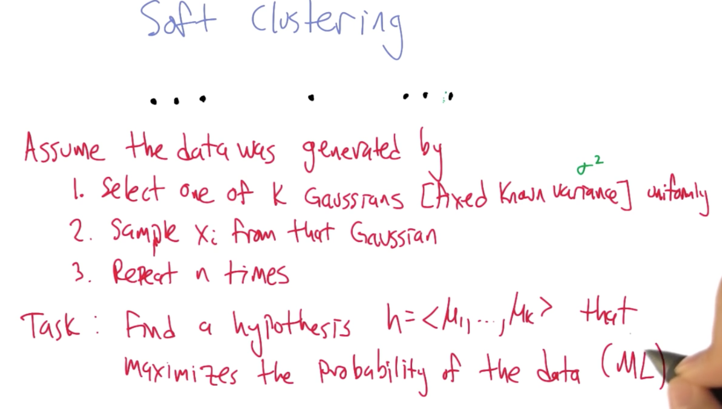 Soft Clustering
Assume the data was generated by
σ²
1. Select one of K Gaussians [Fixed Known variance] uniformly
2. Sample Xi from that Gaussian
3. Repeat n times
Task: Find a hypothesis h=<μ1,...,μk> that
maximizes the probability of the data (ML)